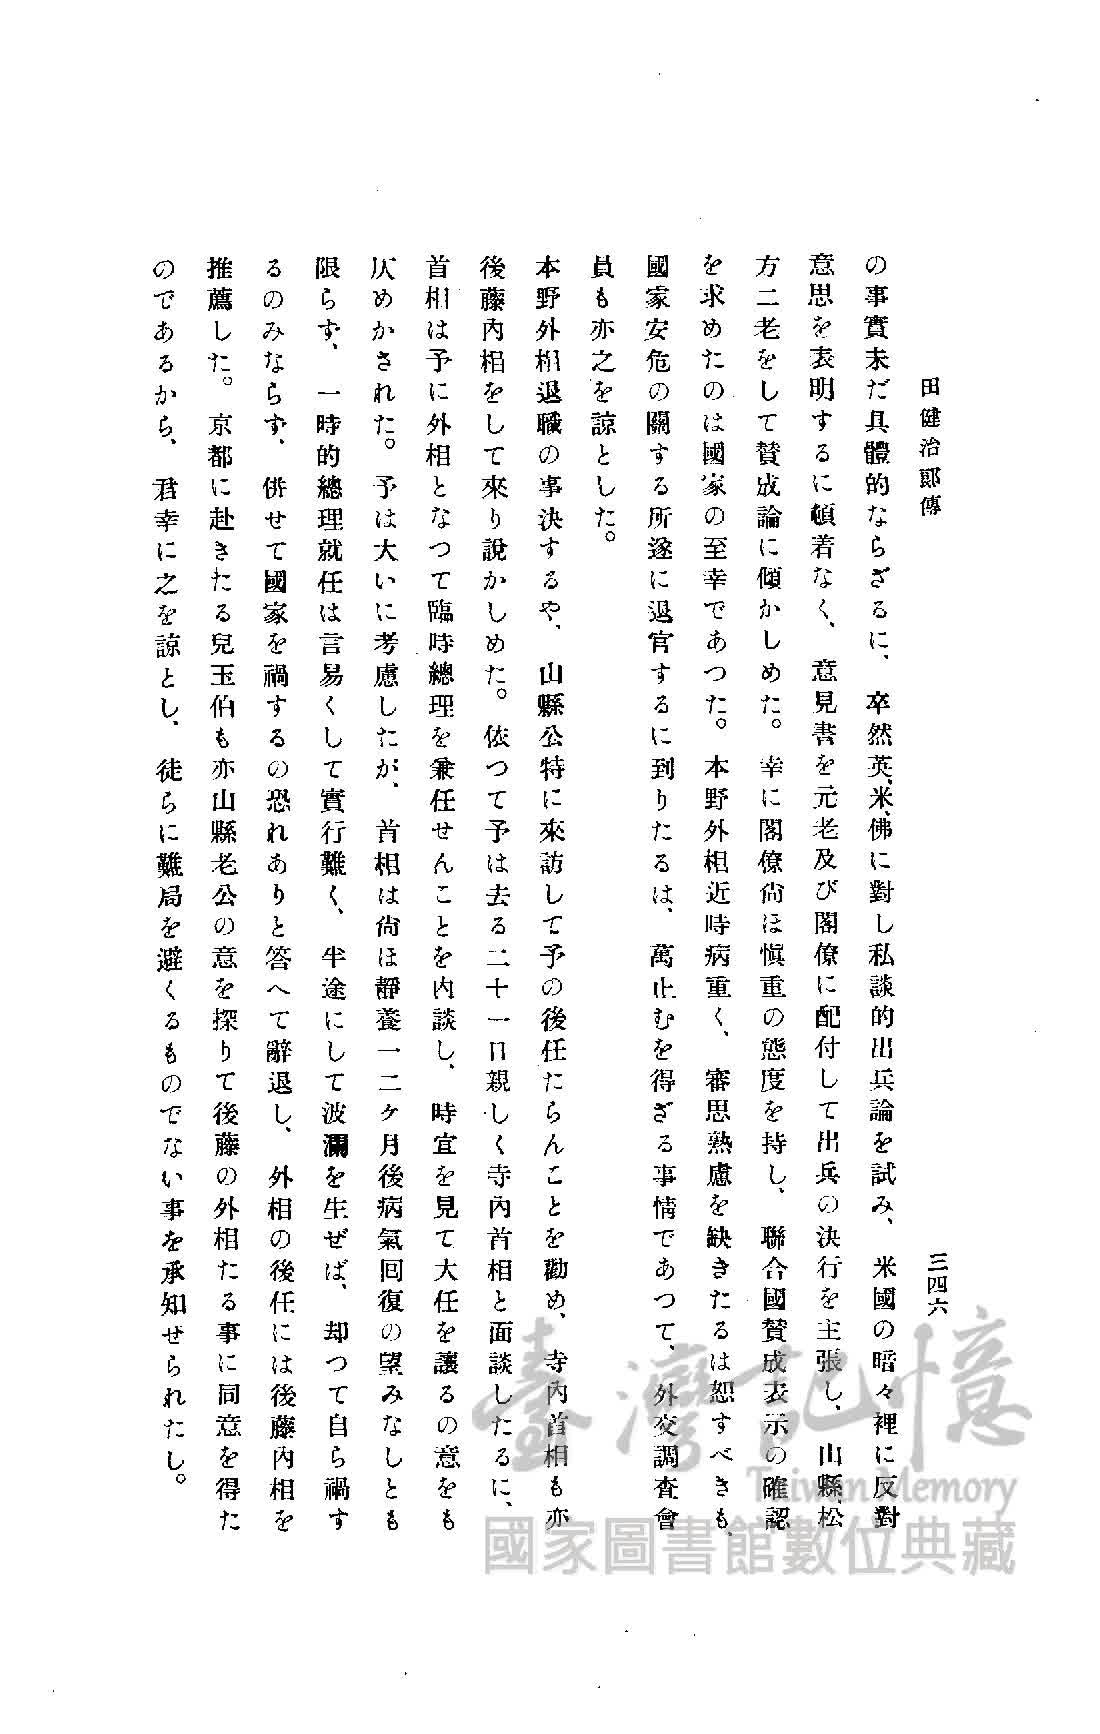 田健治郎傳
三四六
の事實未だ具體的ならざるに、卒然英、米、佛に對し私談的出兵論を試み、米國の暗々裡に反對
意思を表明するに頓着なく、意見書を元老及び閣僚に配付して出兵の決行を主張し、山縣、松
方二老をして賛成論に傾かしめた。幸に閣僚尙ほ愼重の態度を持し、聯合國賛成表示の確認
を求めたのは國家の至幸であつた。本野外相近時病重く、審思熟慮を缺きたるは恕すべきも、
國家安危の關する所遂に退官するに到りたるは、萬止むを得ざる事情であつて、外交調査會
員も亦之を諒とした。
本野外相退職の事決するや、山縣公特に來訪して予の後任たらんことを勸め、寺內首相も亦
後藤內相をして來り說かしめた。依つて予は去る二十一日親しく寺內首相と面談したるに、
首相は予に外相となつて臨時總理を兼任せんことを內談し、時宜を見て大任を讓るの意をも
仄めかされた。予は大いに考慮したが、首相は尙ほ靜養一二ケ月後病氣回復の望みなしとも
限らず、一時的總理就任は言易くして實行難く、半途にして波瀾を生ぜば、却つて自ら禍す
るのみならず、併せて國家を禍するの恐れありと答へて辭退し、外相の後任には後藤內相を
推薦した。京都に赴きたる兒玉伯も亦山縣老公の意を探りて後藤の外相たる事に同意を得た
のであるから、君幸に之を諒とし、徒らに難局を避くるものでない事を承知せられたし。
臺灣記憶
Taiwan Memory
國家圖書館數位典藏